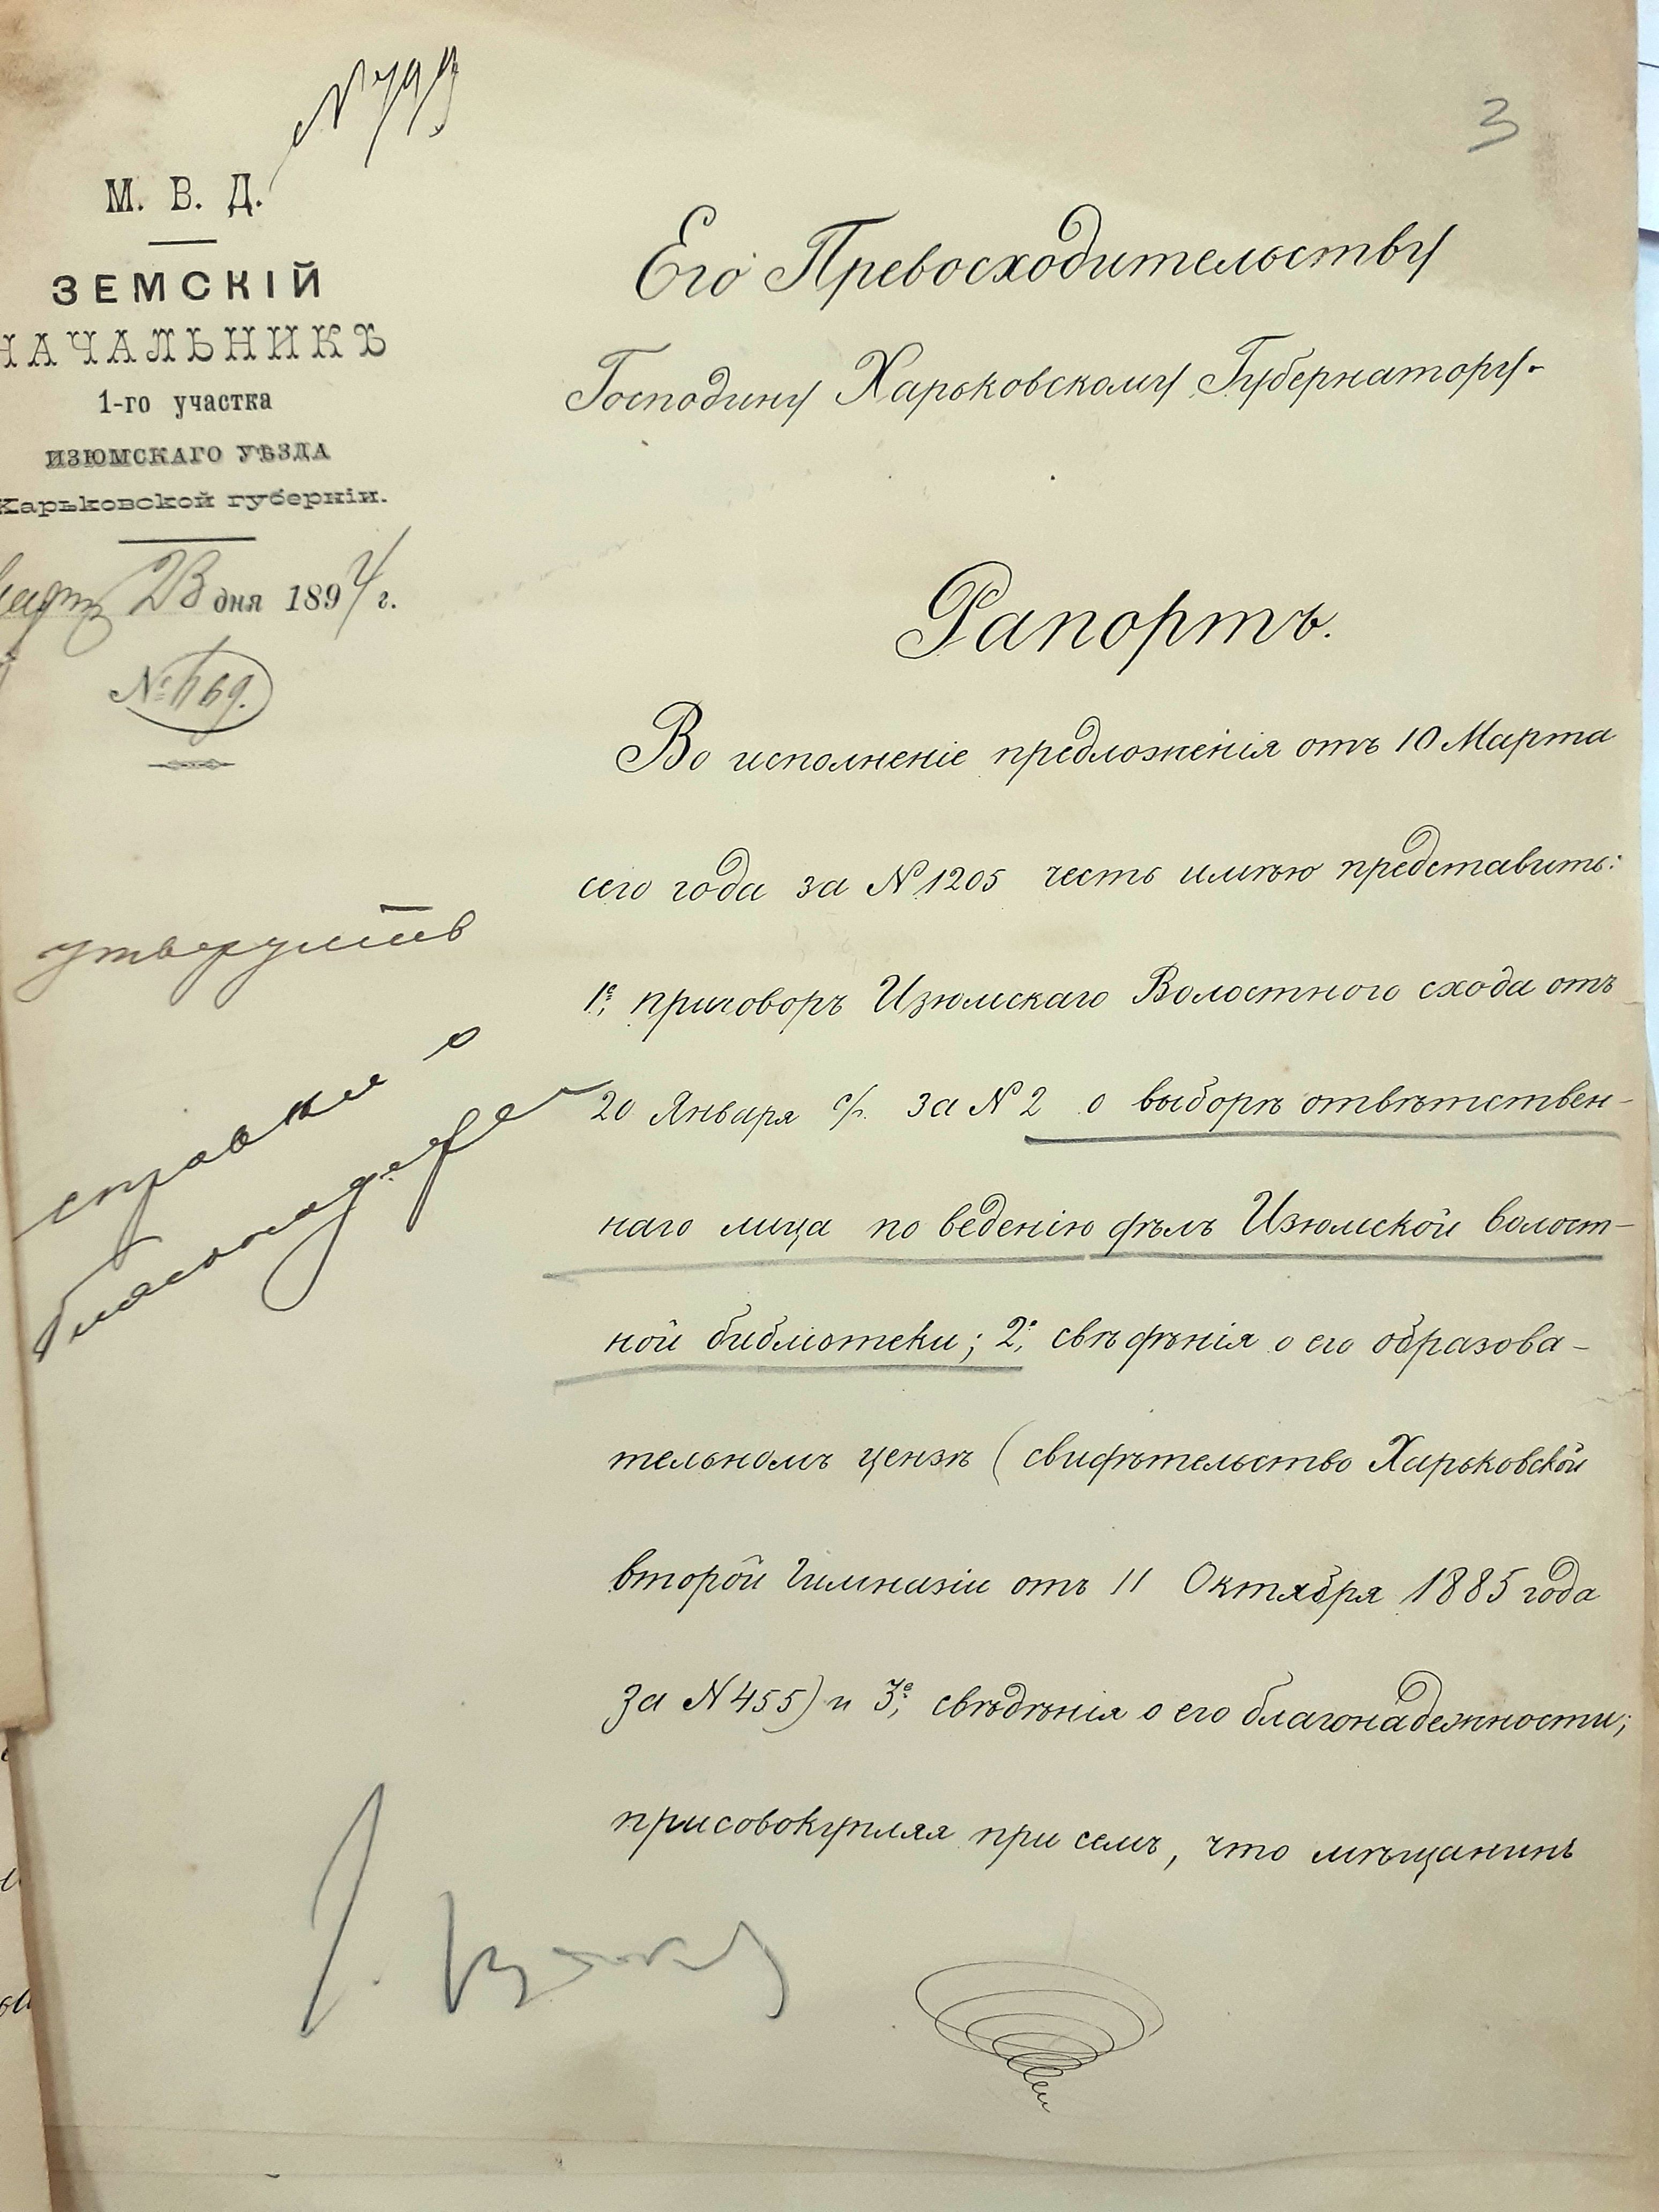 3
М. В. Д.
ЗЕМСКІЙ
НАЧАЛЬНИКЪ
1-го участка
ИЗЮМСКАГО УѢЗДА
Харьковской губерніи.
23 дня 1894 г.
Его Превосходительству
Господину Харьковскому Губернатору.
Рапортъ.
Во исполненіе предложенія отъ 10 Марта
сего года за N 1205 честь имѣю представить:
1е, приговоръ Изюмскаго Волостного схода отъ
20 Января с/г. за N 2 о выборѣ отвѣтствен-
наго лица по веденію дѣлъ Изюмской волост-
ной библіотеки; 2е, свѣдѣнія о его образова-
тельномъ цензѣ (свидѣтельство Харьковской
второй Гимназіи отъ 11 Октября 1885 года
за N 455) и 3е, свѣдѣнія о его благонадежности;
присовокупляя при семъ, что мѣщанинъ
справки о